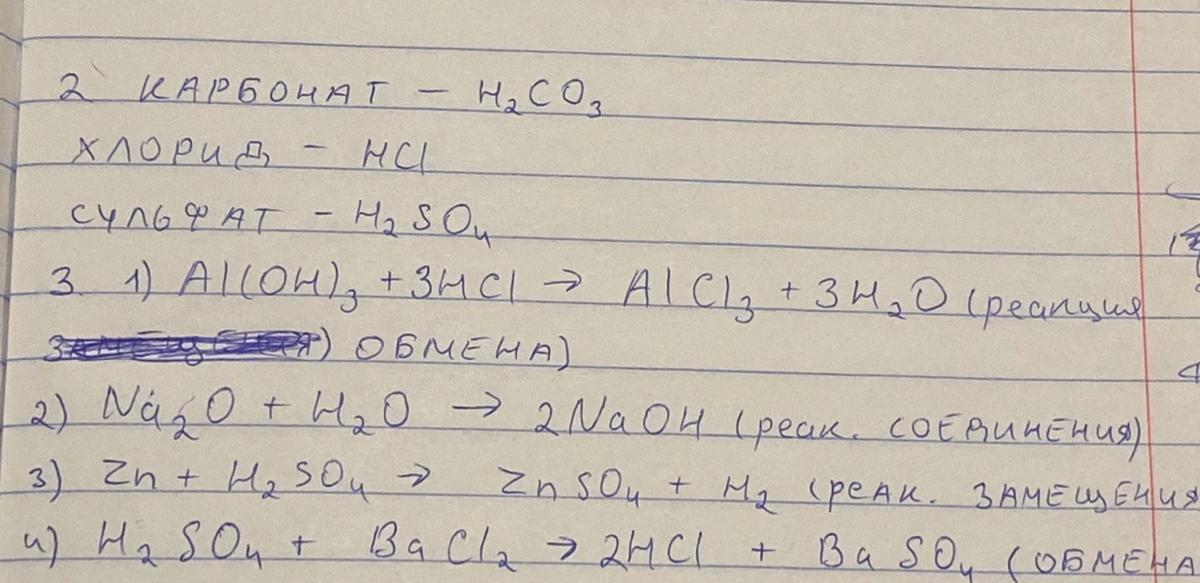 2 КАРБОНАТ – H₂CO₃
ХЛОРИД – HCl
СУЛЬФАТ – H₂SO₄
3. 1) Al(OH)₃ + 3HCl → AlCl₃ + 3H₂O (реакция
) ОБМЕНА)
2) Na₂O + H₂O → 2NaOH (реак. СОЕДИНЕНИЯ)
3) Zn + H₂SO₄ → ZnSO₄ + H₂ (РЕАК. ЗАМЕЩЕНИЯ
4) H₂SO₄ + BaCl₂ → 2HCl + BaSO₄ (ОБМЕНА